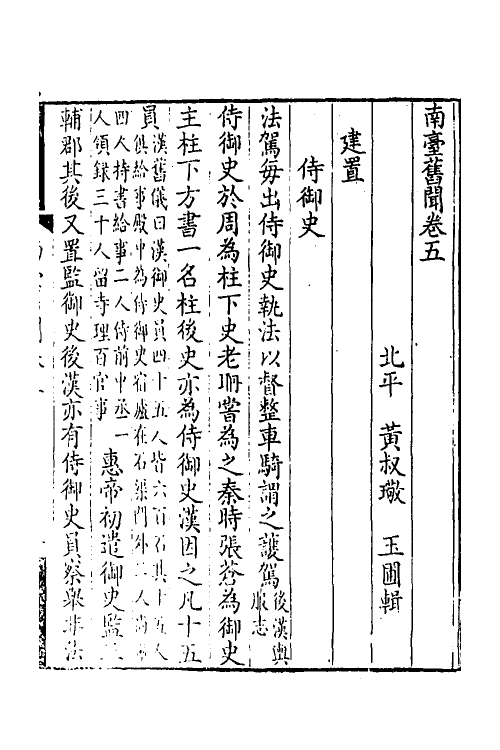 南臺舊聞卷五
北平　黃叔璥　玉圃輯
建置
侍御史
法駕每出侍御史執法以督整車騎謂之護駕後漢輿
服志
侍御史於周為柱下史老聃嘗為之秦時張蒼為御史
主柱下方書一名柱後史亦為侍御史漢因之凡十五
員漢舊儀曰漢御史員四十五人皆六百石其十五人
俱給事殿中為侍御史宿廬在石渠門外二人尚
四人持書給事二人侍前中丞一
人領錄三十人留寺理百官事
惠帝初遣御史監三
輔郡其後又置監御史後漢亦有侍御史員察舉非法